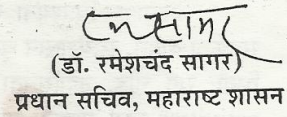 (डॉ. रमेशचंद सागर)
प्रधान सचिव, महाराष्ट शासन